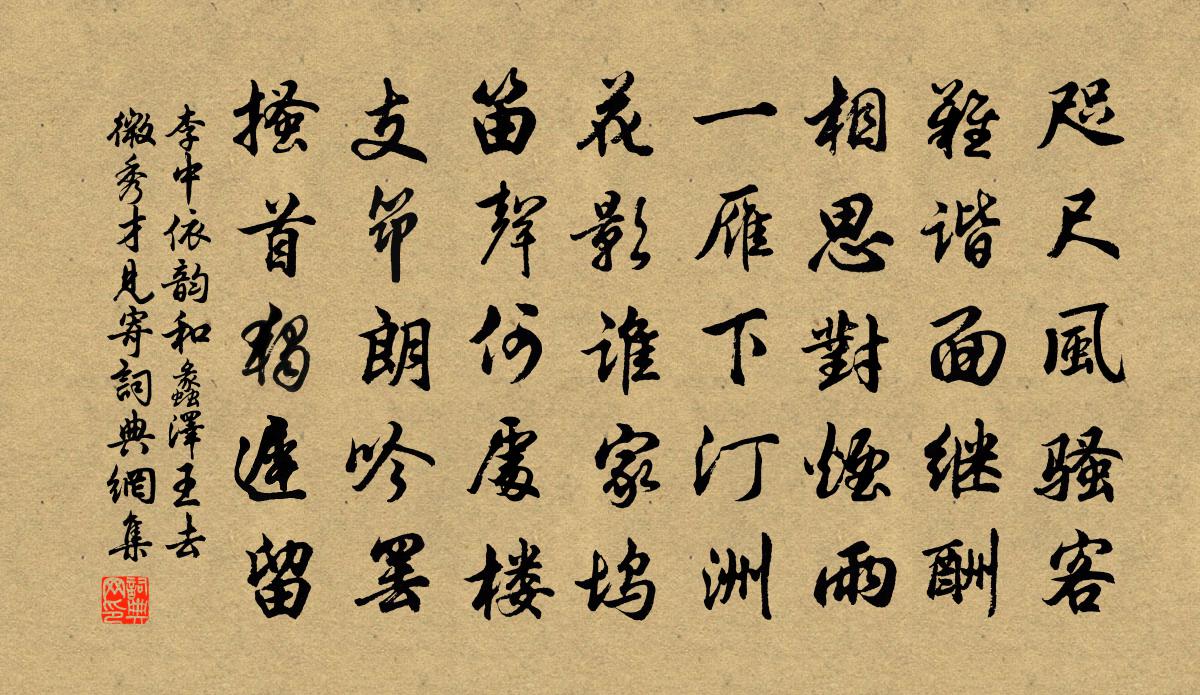 咫尺風騷客
難谐面继酬
相思對煙雨
一雁下汀洲
花影谁家坞
笛聲何處楼
支笻朗吟罢
搔首獨遲留
李中依韵和蠡澤王去
微秀才見寄詞典網集
詞典
网印